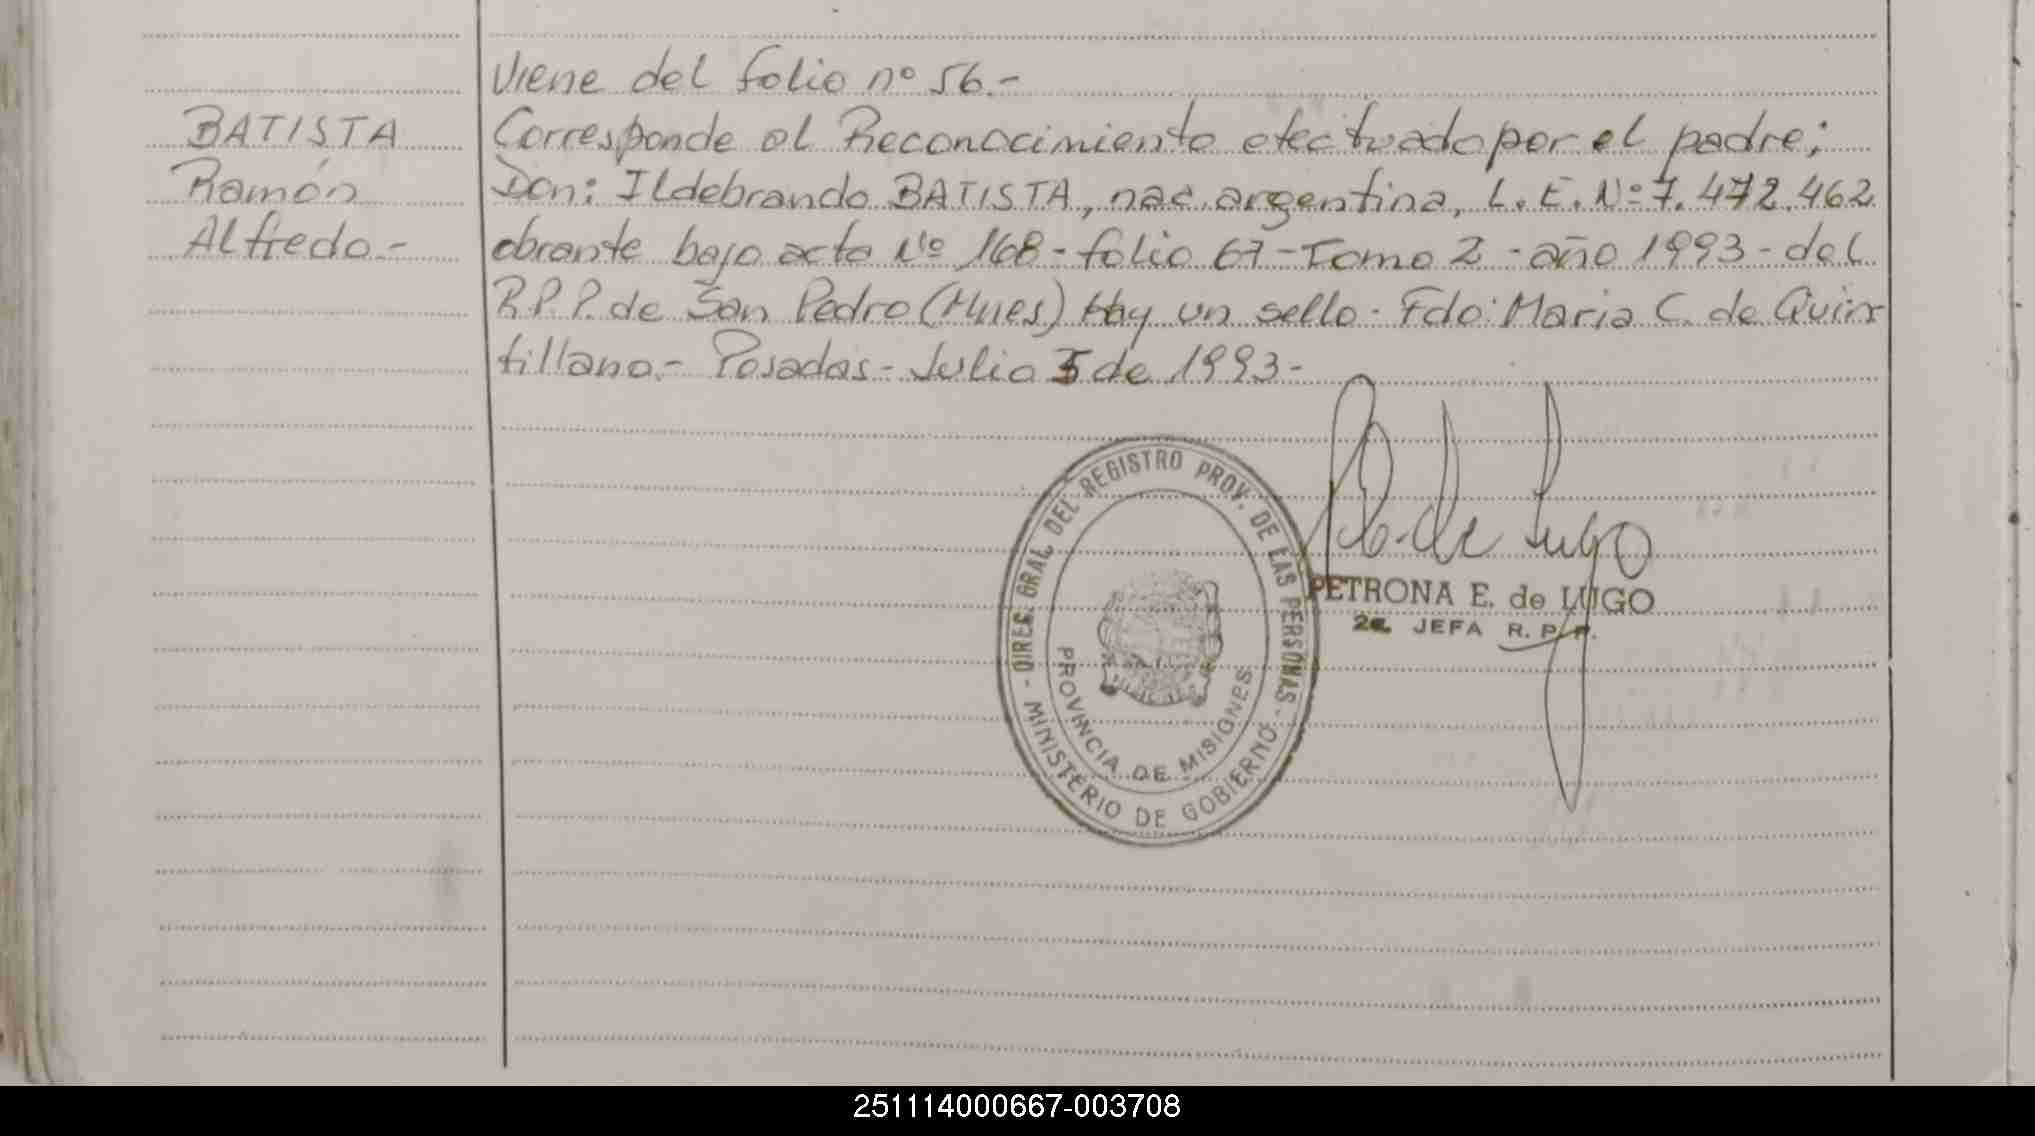 Viene del folio nº 56.-
BATISTA
Ramón
Alfredo.-
Corresponde al Reconocimiento efectuado por el padre;
Don: Ildebrando BATISTA, nac. argentina, L.E. Nº 7.472.462
obrante bajo acta Nº 168 - folio 67 - Tomo 2 - año 1993 - del
R.P.P. de San Pedro (Mnes) Hay un sello. Fdo: Maria C. de Quin
tillano.- Posadas - Julio 5 de 1993.-
P. de Lugo
- DIREC. GRAL. DEL REGISTRO PROV. DE LAS PERSONAS -
PROVINCIA DE MISIONES
MINISTERIO DE GOBIERNO
PETRONA E. de LUGO
2a. JEFA R. P. P.
251114000667-003708